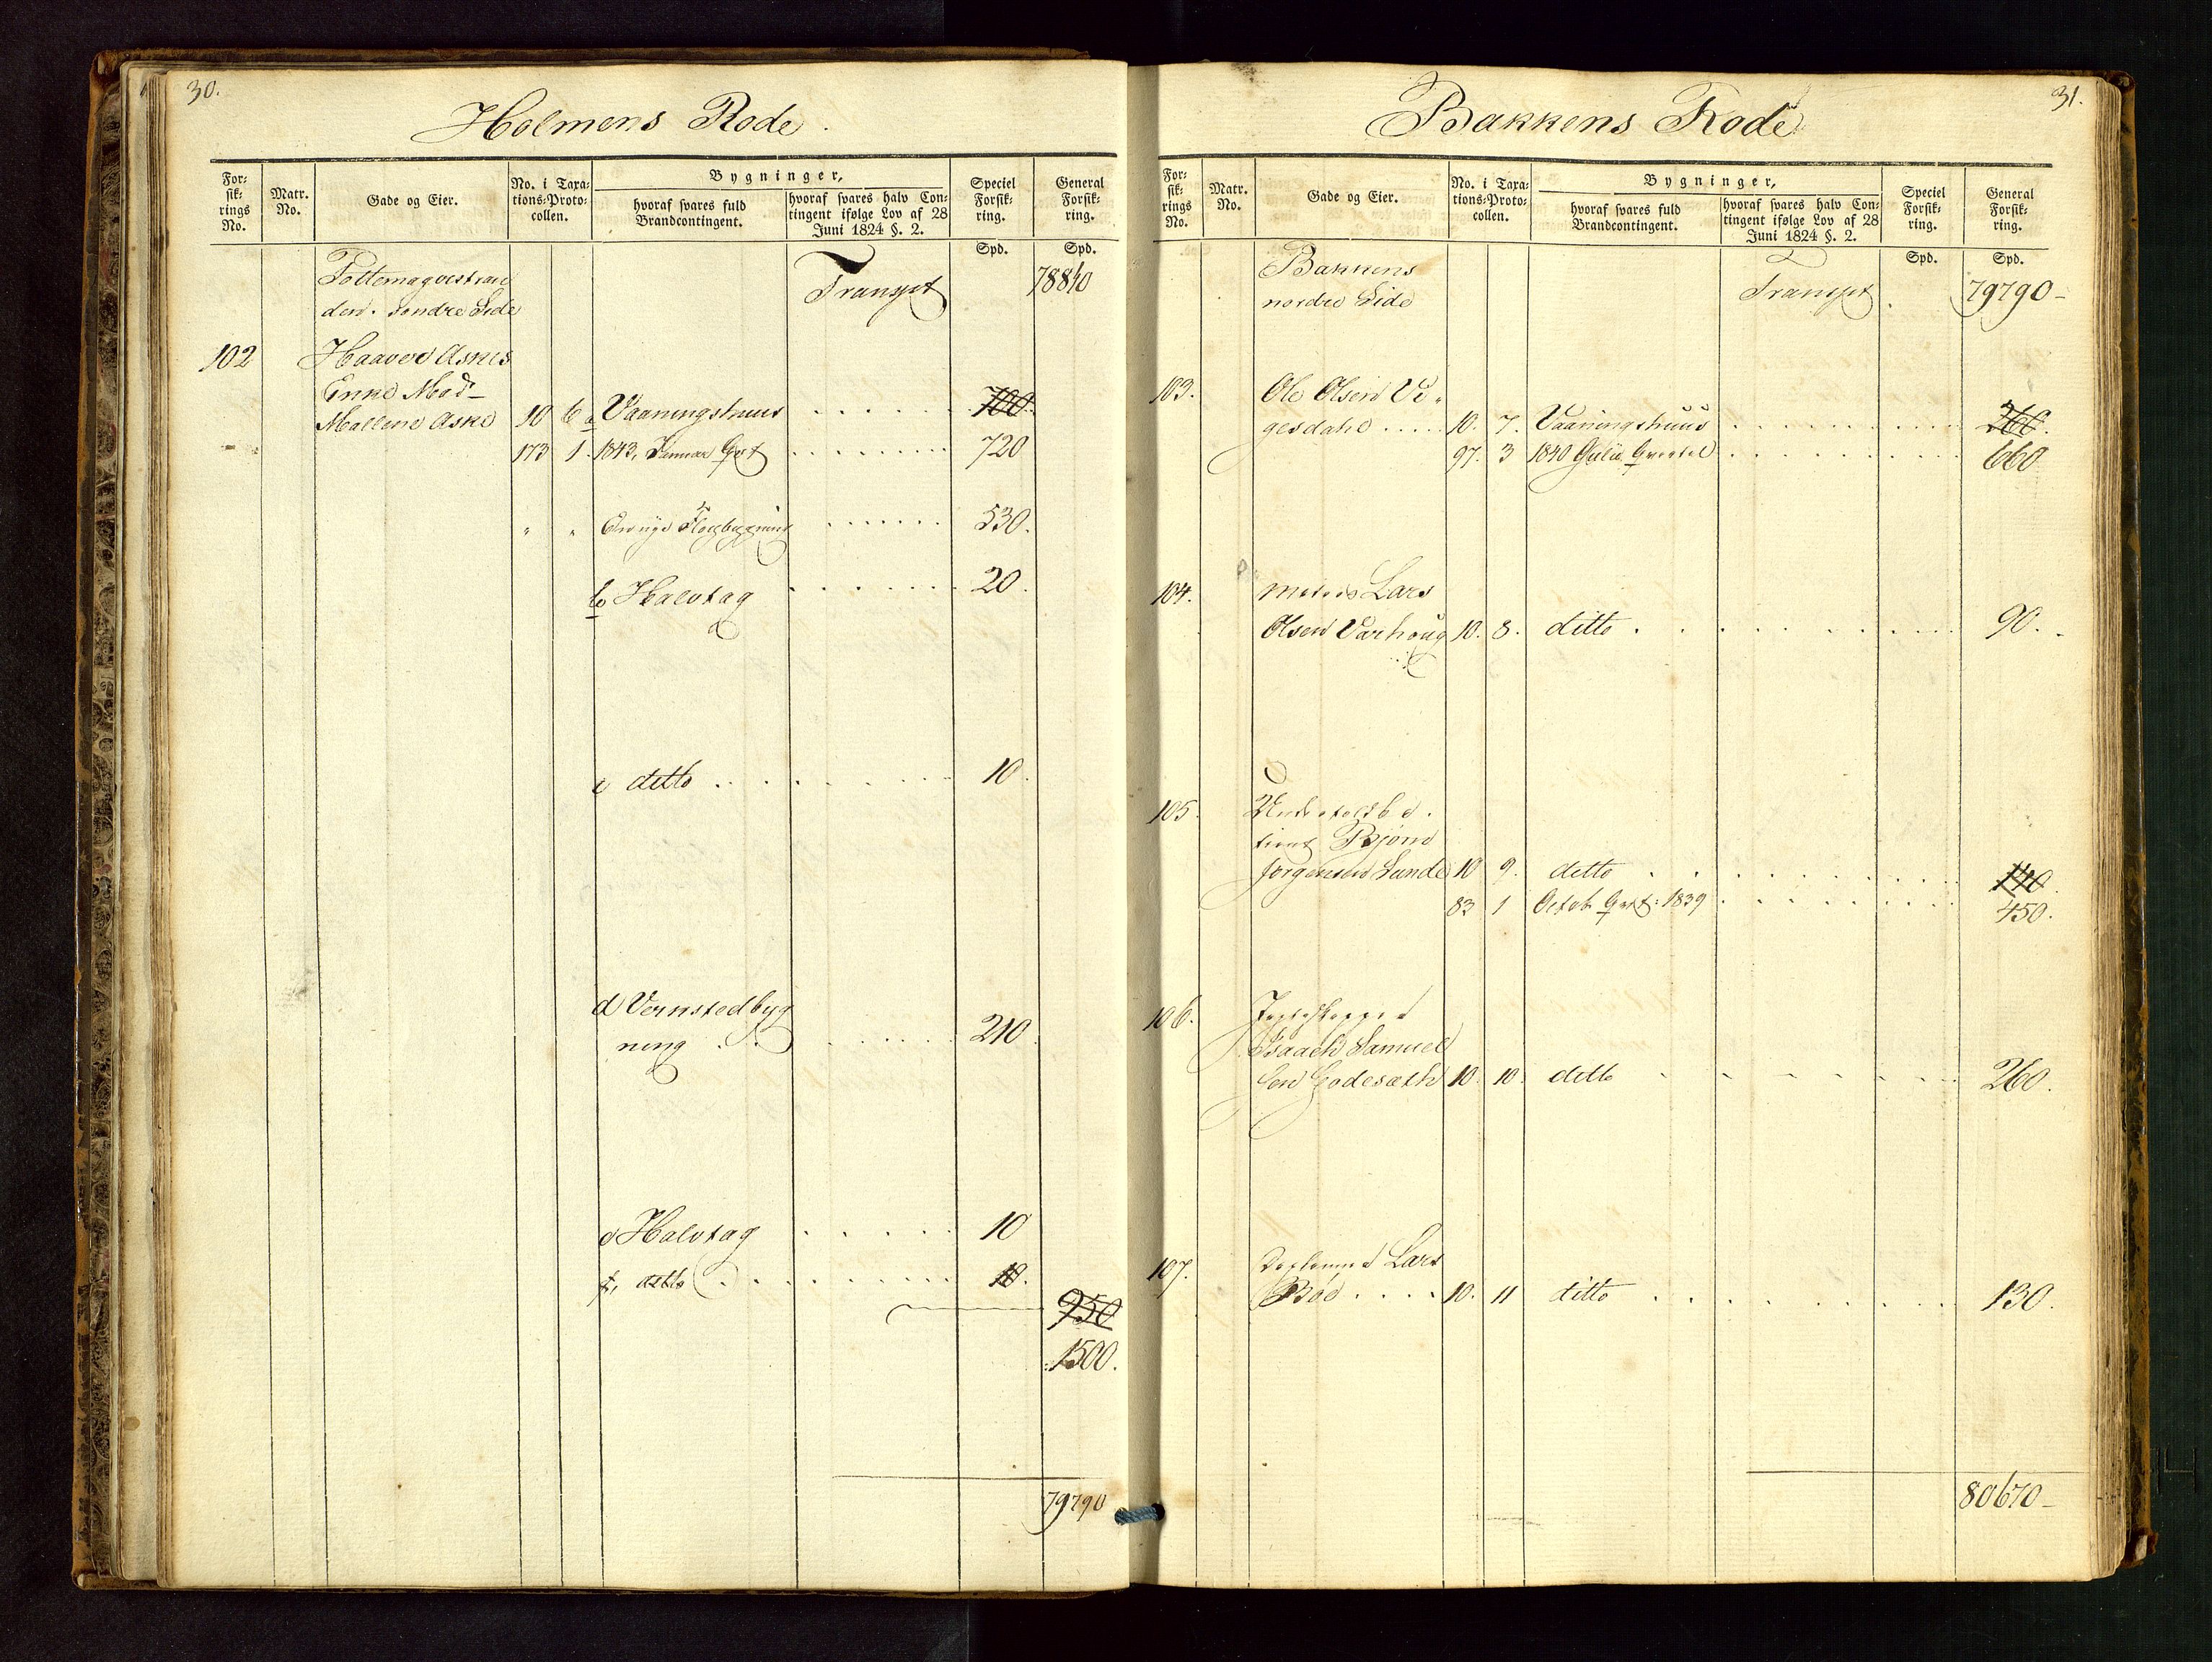 30.
Holmens Rode.
For-
sik-
rings
No.
Matr.
No.
Gade og Eier.
No. i Taxa-
tions-Proto-
collen.
Bygninger,
hvoraf svares fuld
Brandcontingent.
hvoraf svares halv Con-
tingent ifølge Lov af 28
Juni 1824 §. 2.
Speciel
Forsik-
ring.
General
Forsik-
ring.
Spd. Spd.
Pottemagerstran
den. søndre Side
Transpt 78840
102 Haaver Askes
Enke Mad-
Mallene Aske 10 6 a Vaaningshuus 700
173 1. 1843, Januar Qvt 720
" " Fløgbygning 530.
b Halvtag 20.
c ditto 10.
d Verkstedbyg
ning 210
e Halvtag 10
f, ditto 10.
950
1500.
79790
31.
Bakkens Rode
For-
sik-
rings
No.
Matr.
No.
Gade og Eier.
No. i Taxa-
tions-Proto-
collen.
Bygninger,
hvoraf svares fuld
Brandcontingent.
hvoraf svares halv Con-
tingent ifølge Lov af 28
Juni 1824 §. 2.
Speciel
Forsik-
ring.
General
Forsik-
ring.
Spd. Spd.
Bakkens
nordre Side
Transpt. 79790-
103. Ole Olsen Vi-
gesdahl 10. 7. Vaaningshuus 260.
97. 3 1840 Julii Qvartal 660
104. Lars
Olsen Varhoug 10. 8. ditto 90.
105.
Bjørn
Jørgensen Lunde 10 9. ditto 140.
83 1 Octob Qvrt: 1839 450.
106.
Isaach Samuel
sen Godesæth 10. 10. ditto 260.
107. Lars
Bøe 10. 11 ditto 130.
80670-